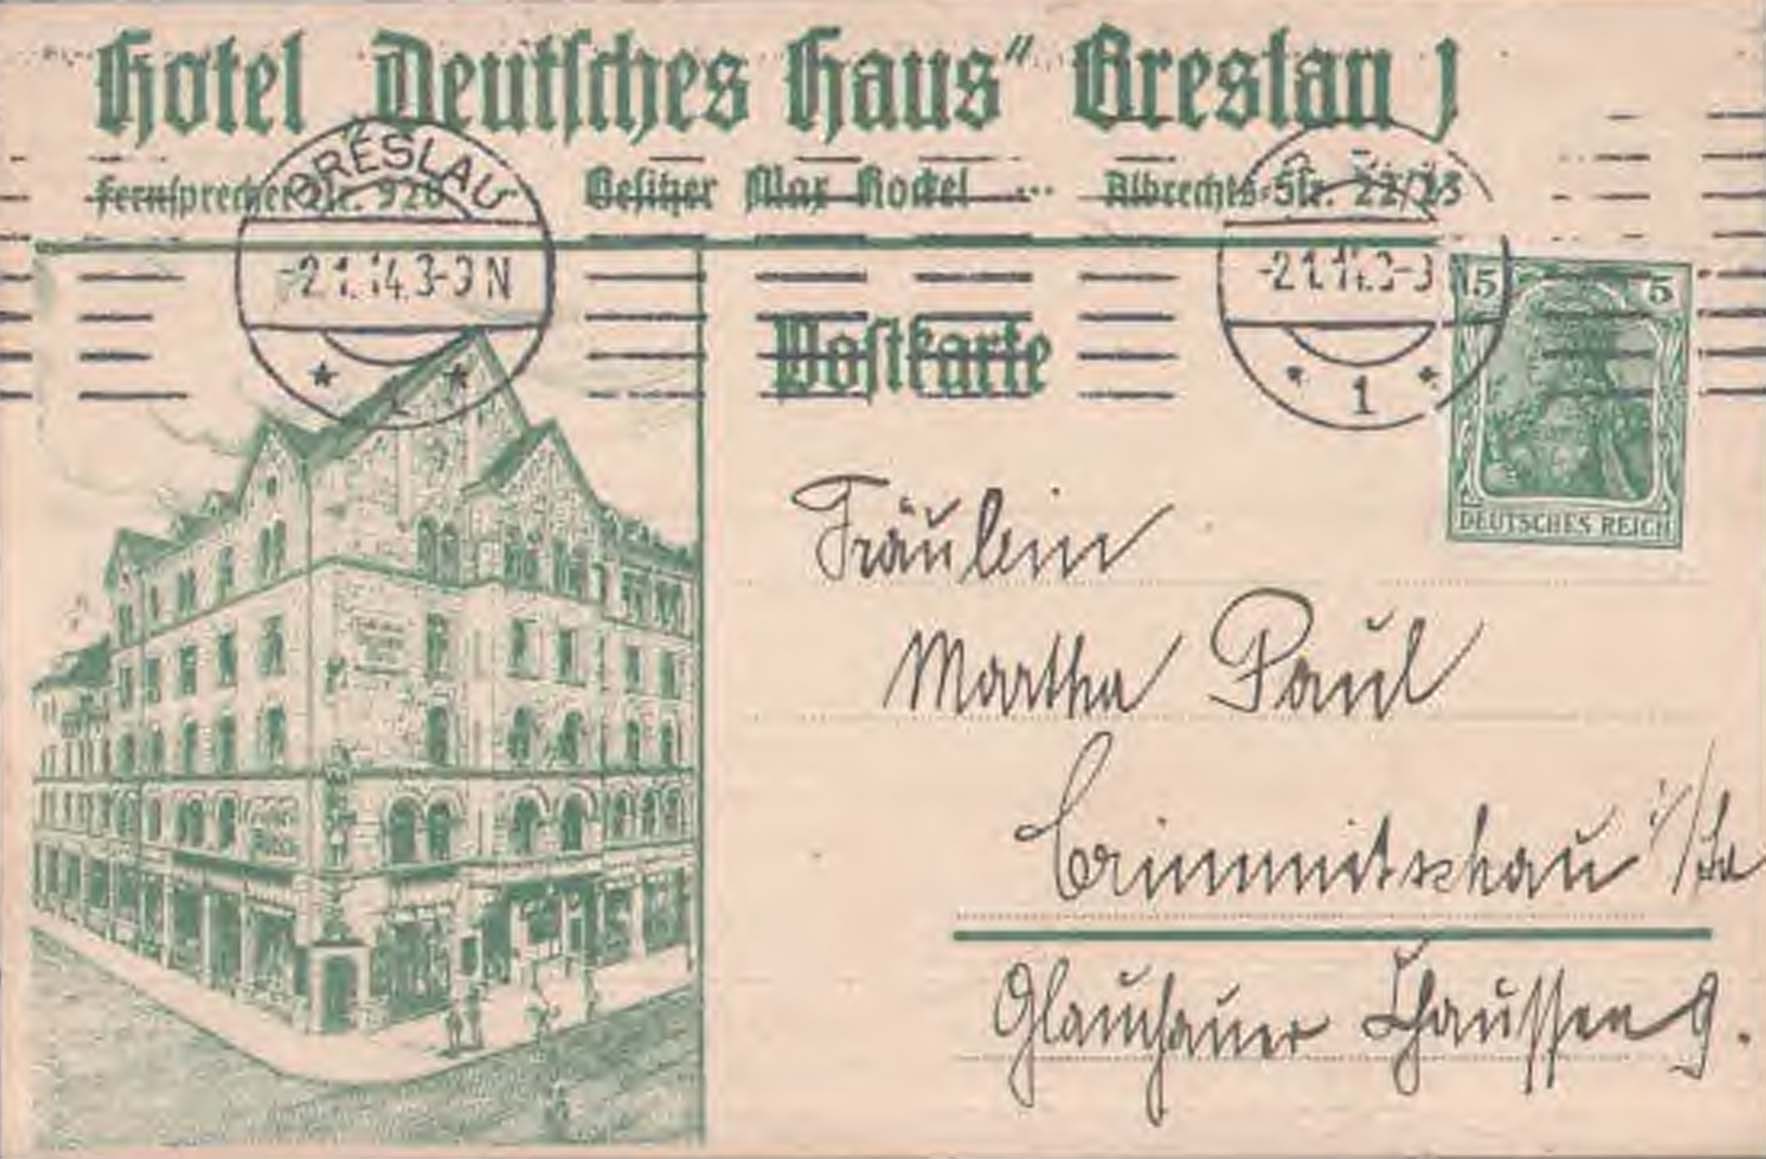 Hotel „Deutsches Haus“ Breslau J
Fernsprecher Nr. 920 Besitzer Max Rockel ... Albrechts-Str. 22/23
BRESLAU
-2.1.14.3-3 N
-2.1.14.3-3 N
1
5 5
DEUTSCHES REICH
Postkarte
Fräulein
Martha Paul
Crimmitschau i/Sa
Glauchauer Chaussee 9.